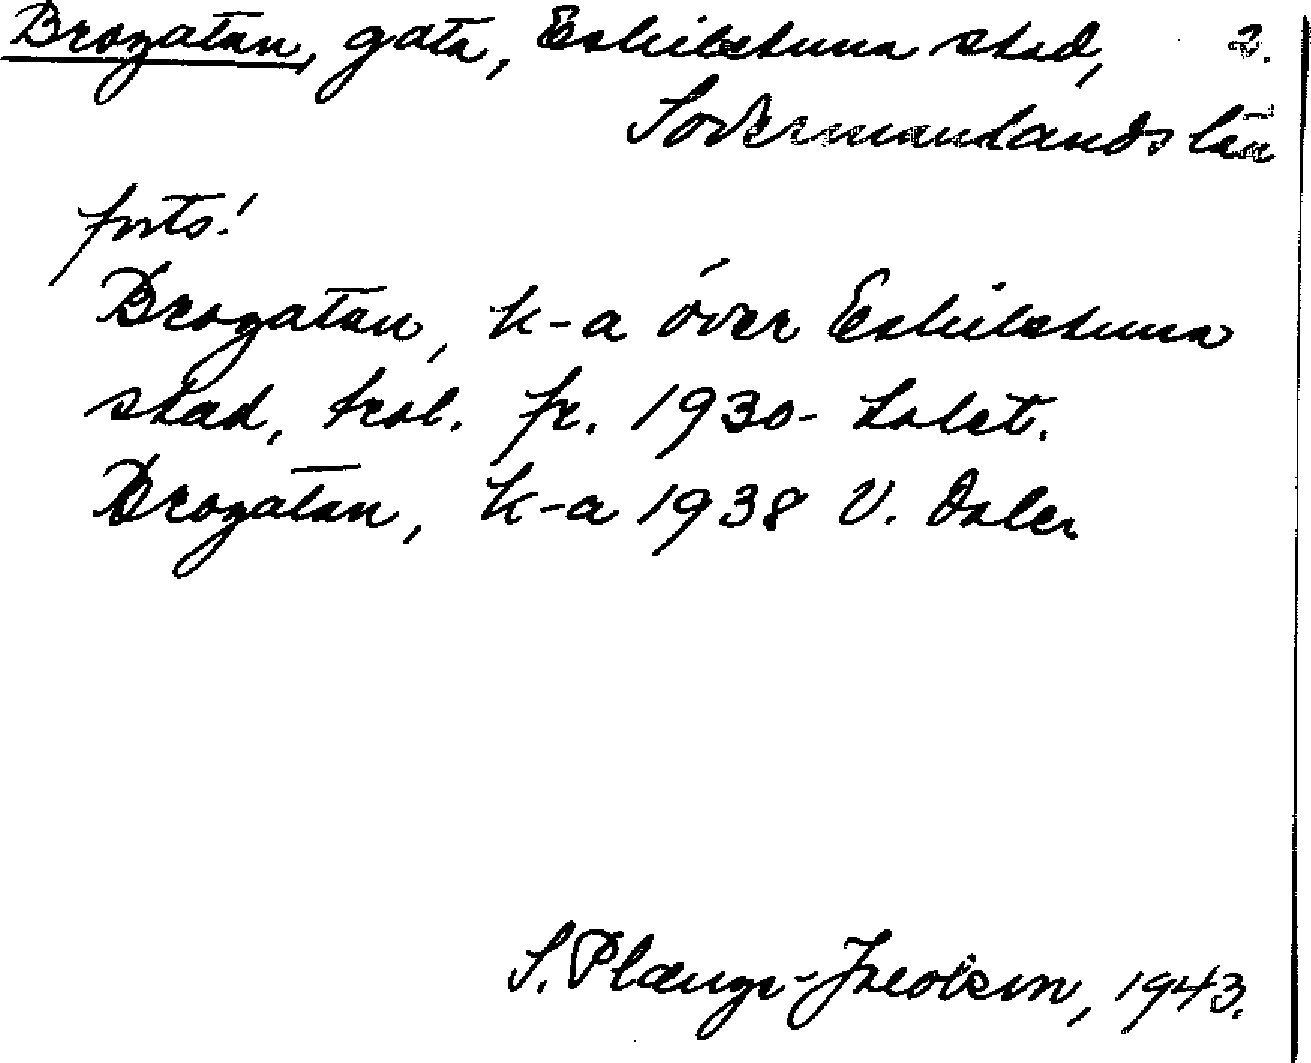 Brogatan, gata, Eskilstuna stad, 2.
Södermanlands län
forts!
Brogatan, k-a över Eskilstuna
stad, trol. fr. 1930-talet.
Brogatan, k-a 1938 V. Dalén
S. Plænge-Jacobson, 1943.